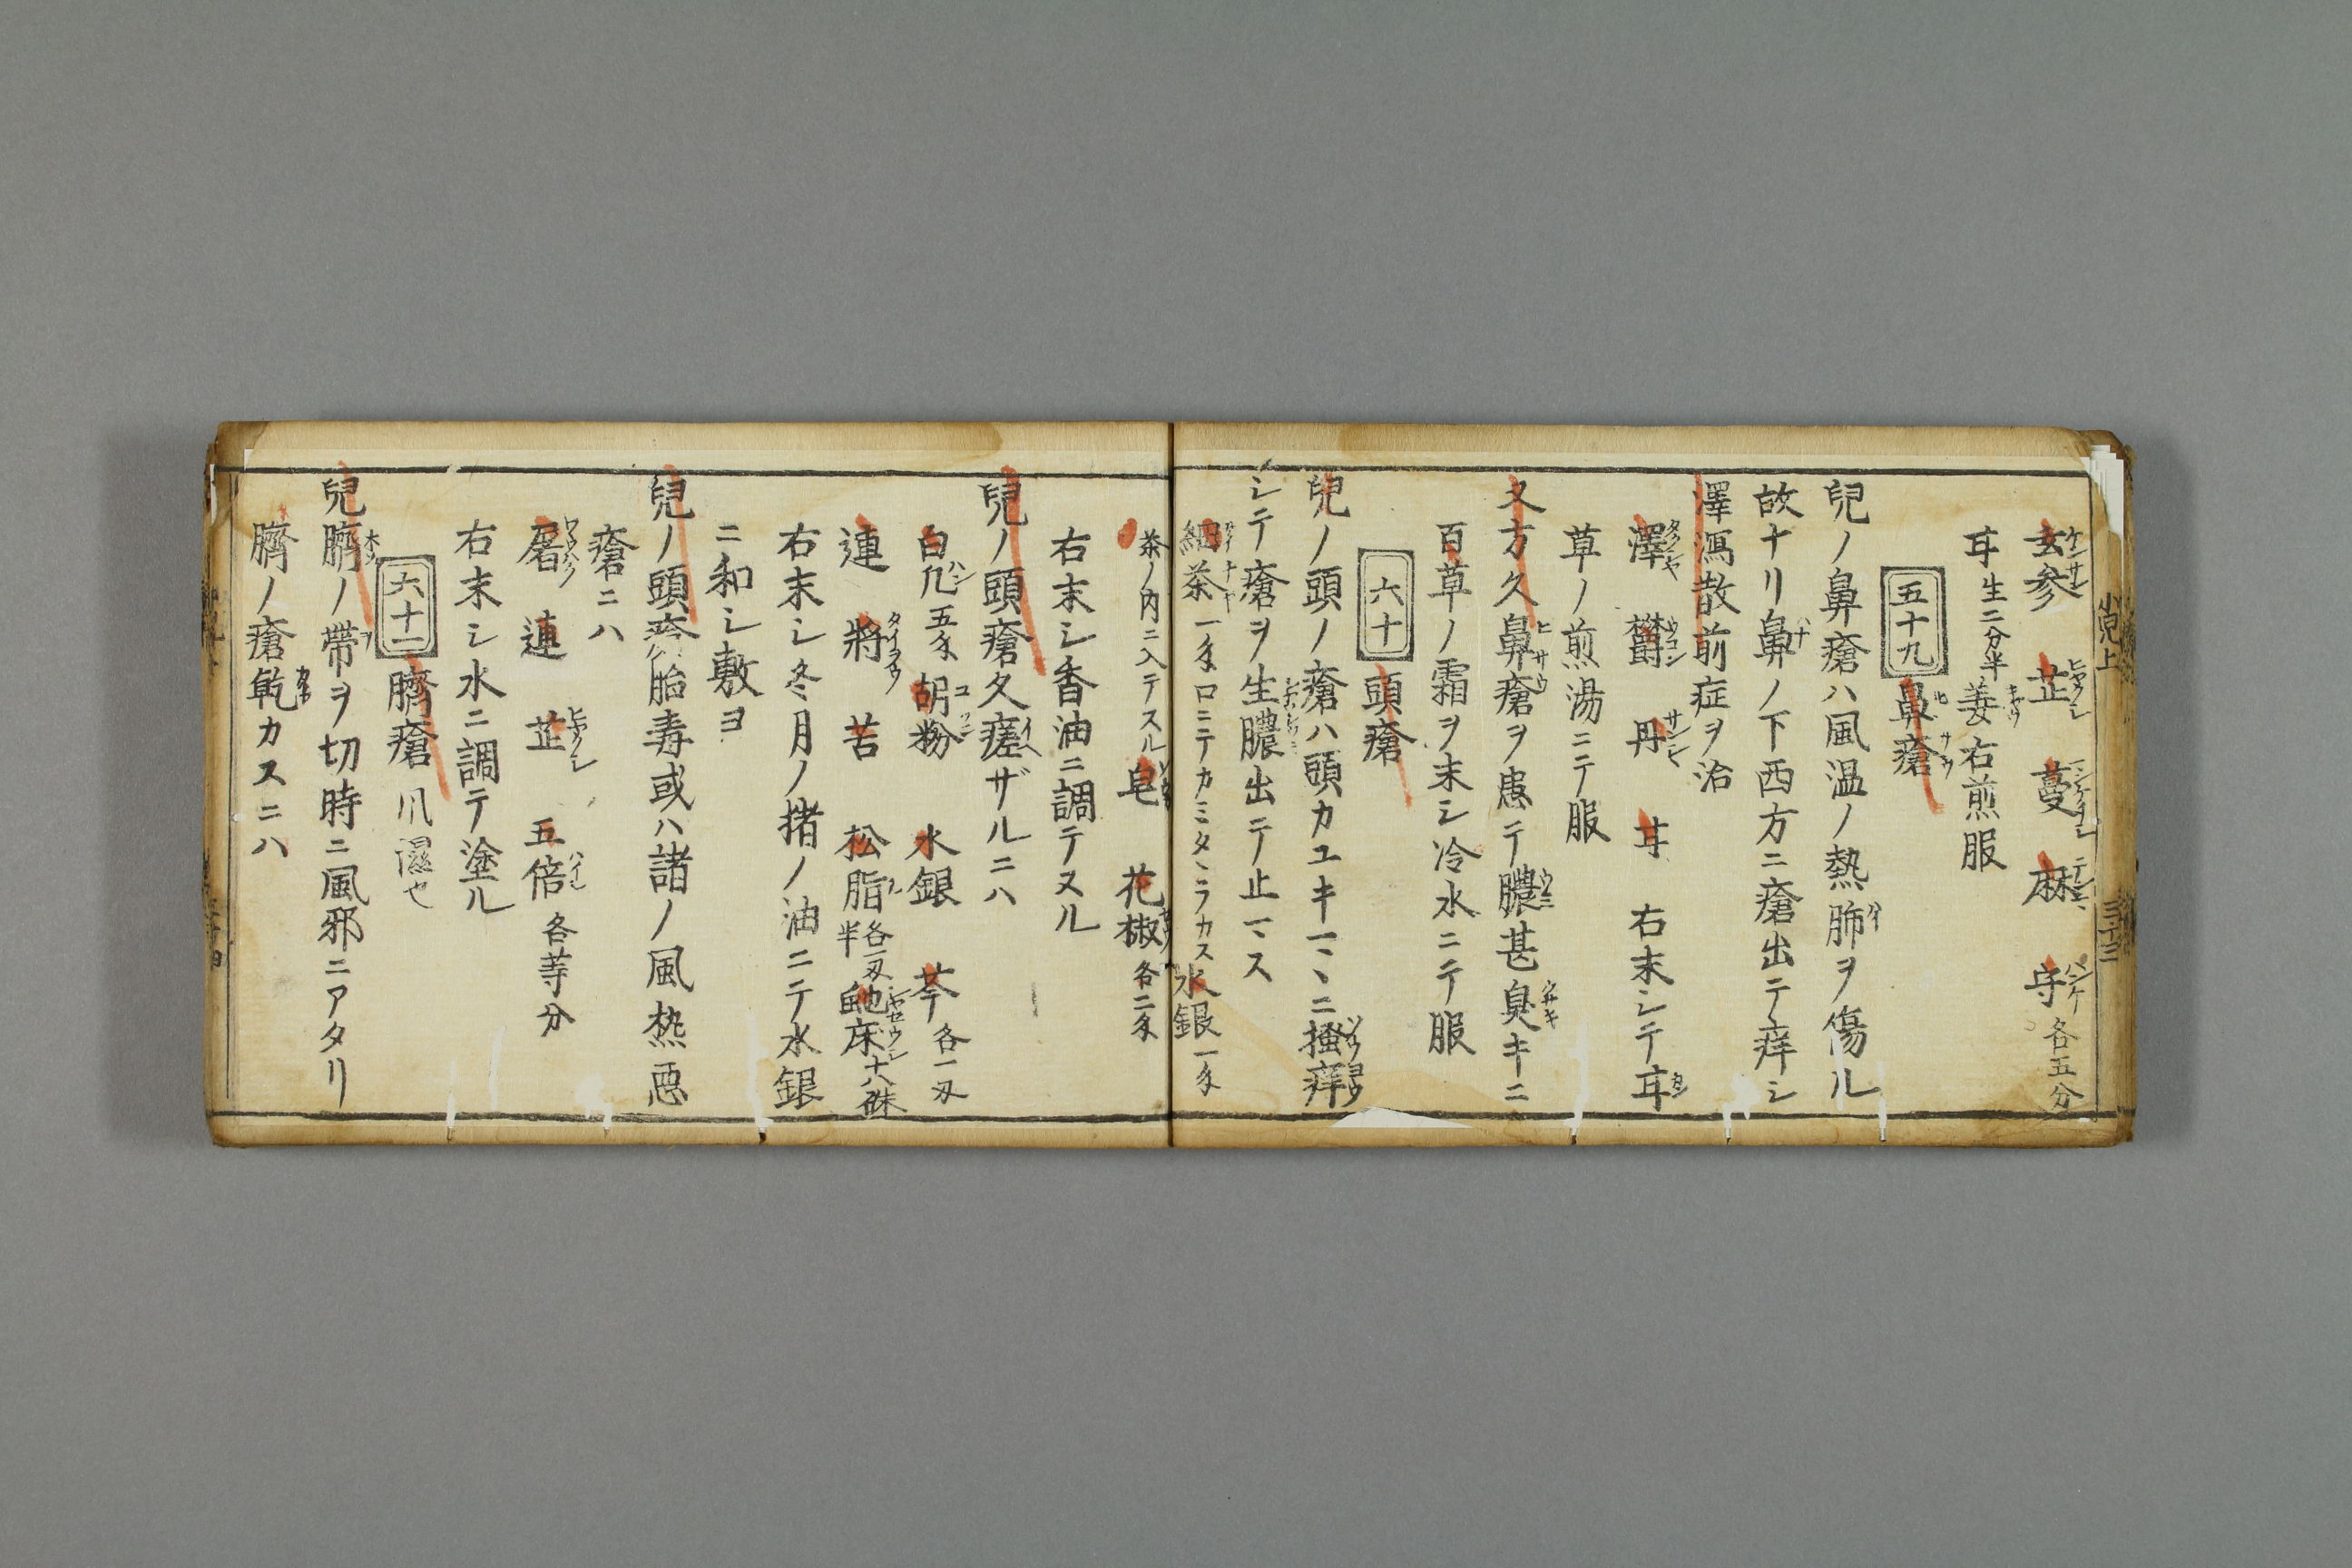 小兒上
玄参 芷 蔓 麻 守 各五分
耳 生二分半 姜 右煎服
五十九 鼻瘡
兒ノ鼻瘡ハ風温ノ熱肺ヲ傷ル
故ナリ鼻ノ下西方ニ瘡出テ痒シ
澤瀉散前症ヲ治
澤 欝 丹 耳 右末シテ耳
草ノ煎湯ニテ服
又方久鼻瘡ヲ患テ膿甚臭キニ
百草ノ霜ヲ末シ冷水ニテ服
六十 頭瘡
兒ノ頭ノ瘡ハ頭カユキマヽニ搔痒
シテ瘡ヲ生膿出テ止マス
細茶 一匁口ニテカミタヽラカス 水銀 一匁
茶ノ内ニ入テスル 皂 花椒 各二匁
右末シ香油ニ調テヌル
兒ノ頭瘡久瘥ザルニハ
白凡 五匁 胡粉 水銀 苓 各一刄
連 將 苦 松脂 各一刄半 虵床 十八銖
右末シ冬月ノ猪ノ油ニテ水銀
ニ和シ敷ヨ
兒ノ頭瘡胎毒或ハ諸ノ風熱惡
瘡ニハ
屠 連 芷 五倍 各等分
右末シ水ニ調テ塗ル
六十一 臍瘡 爪濕也
兒臍ノ帶ヲ切時ニ風邪ニアタリ
臍ノ瘡乾カスニハ